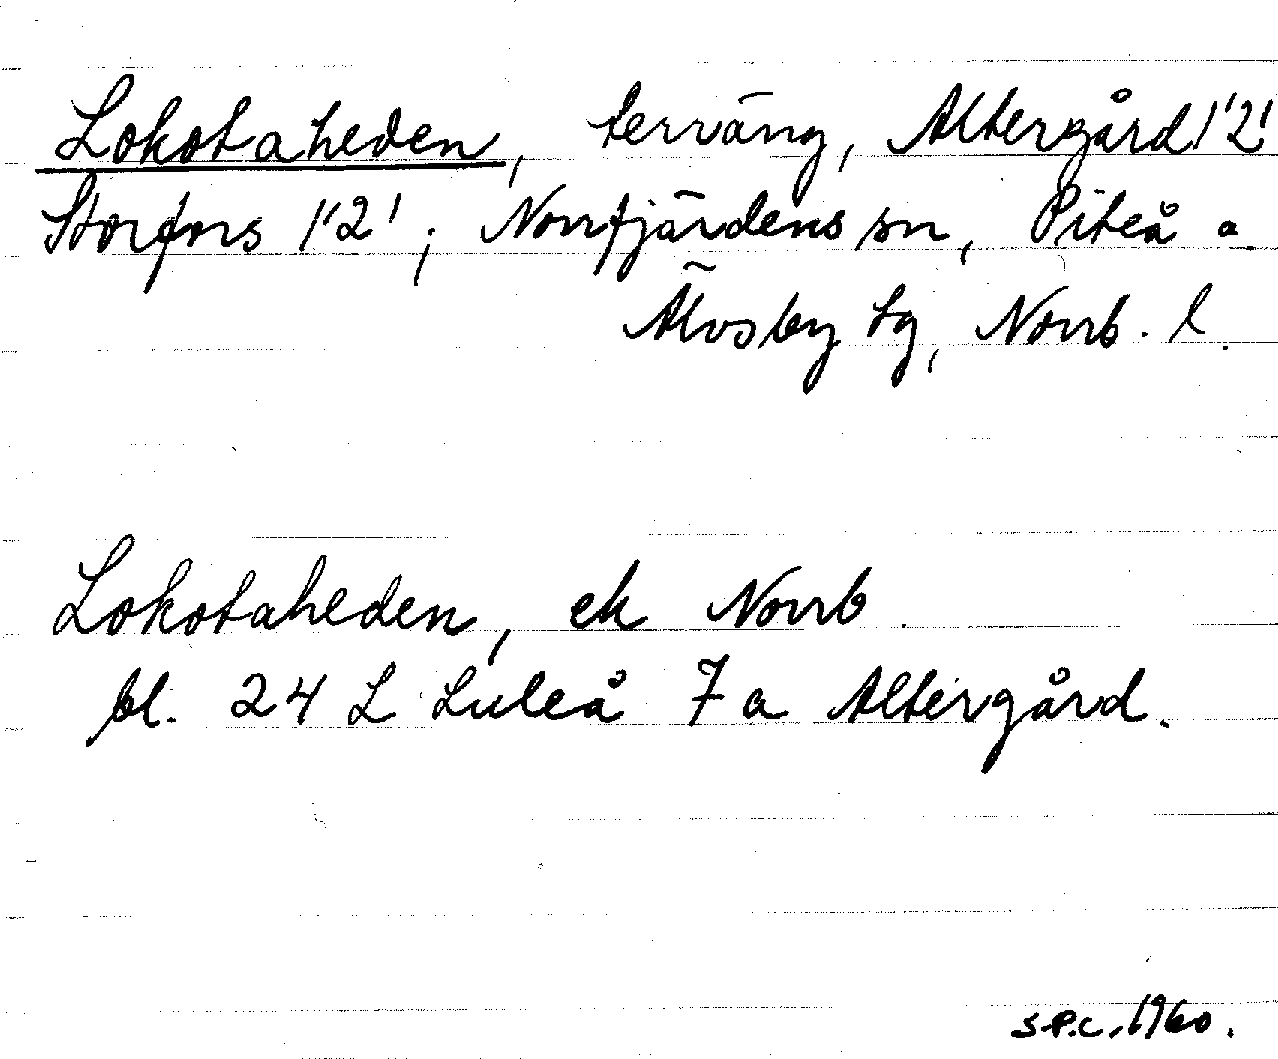 Lokotaheden, terräng, Altergård 1'2'
Storfors 1'2'; Norrfjärdens sn, Piteå o.
Älvsby tg, Norrb. l.
Lokotaheden, ek Norrb
bl. 24 L Luleå 7 a Altergård.
S.P.C. 1960.